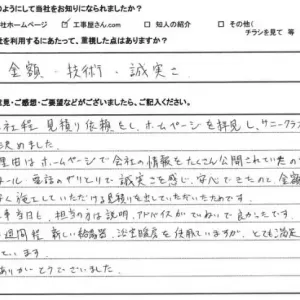 のようにして当社をお知りになられましたか？
社ホームページ ☑ 工事屋さん.com □ 知人の紹介 □ その他（
チラシを見て 等
社を利用するにあたって、重視した点はありますか？
金額・技術・誠実さ
意見・ご感想・ご要望などがございましたら、ご記入ください。
社程 見積り依頼をし、ホームページを拝見し、サニークラ
決めました。
理由はホームページで会社の情報をたくさん公開されていた
メール・電話のやりとりで誠実さを感じ、安心できたのと、金額
安く施工していただける見積りを出していただいたためです。
工事当日も、担当の方は説明、アドバイスがていねいで良かったです。
週間程 新しい給湯器、浴室暖房を使用していますが、とても満足
います。
ありがとうございました。